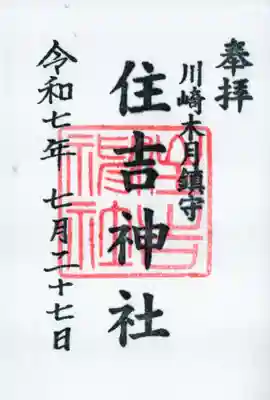 奉拝
川崎木月鎮守
住吉神社
令和七年 七月二十七日